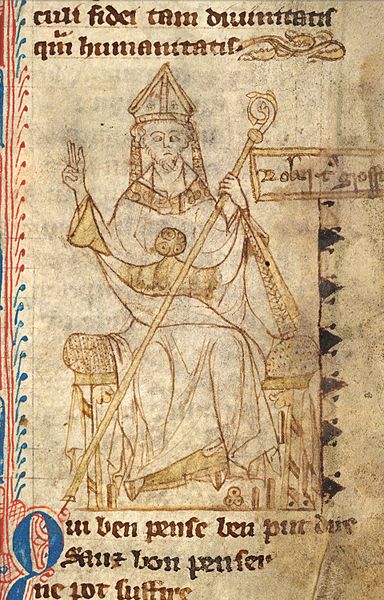 culi fidei tam diuinitatis
qm̄ humanitatis.
Rob̃tꝰ Grosst
Qui ben pense ben put dire
Sanz bon penser
ne pot suffire